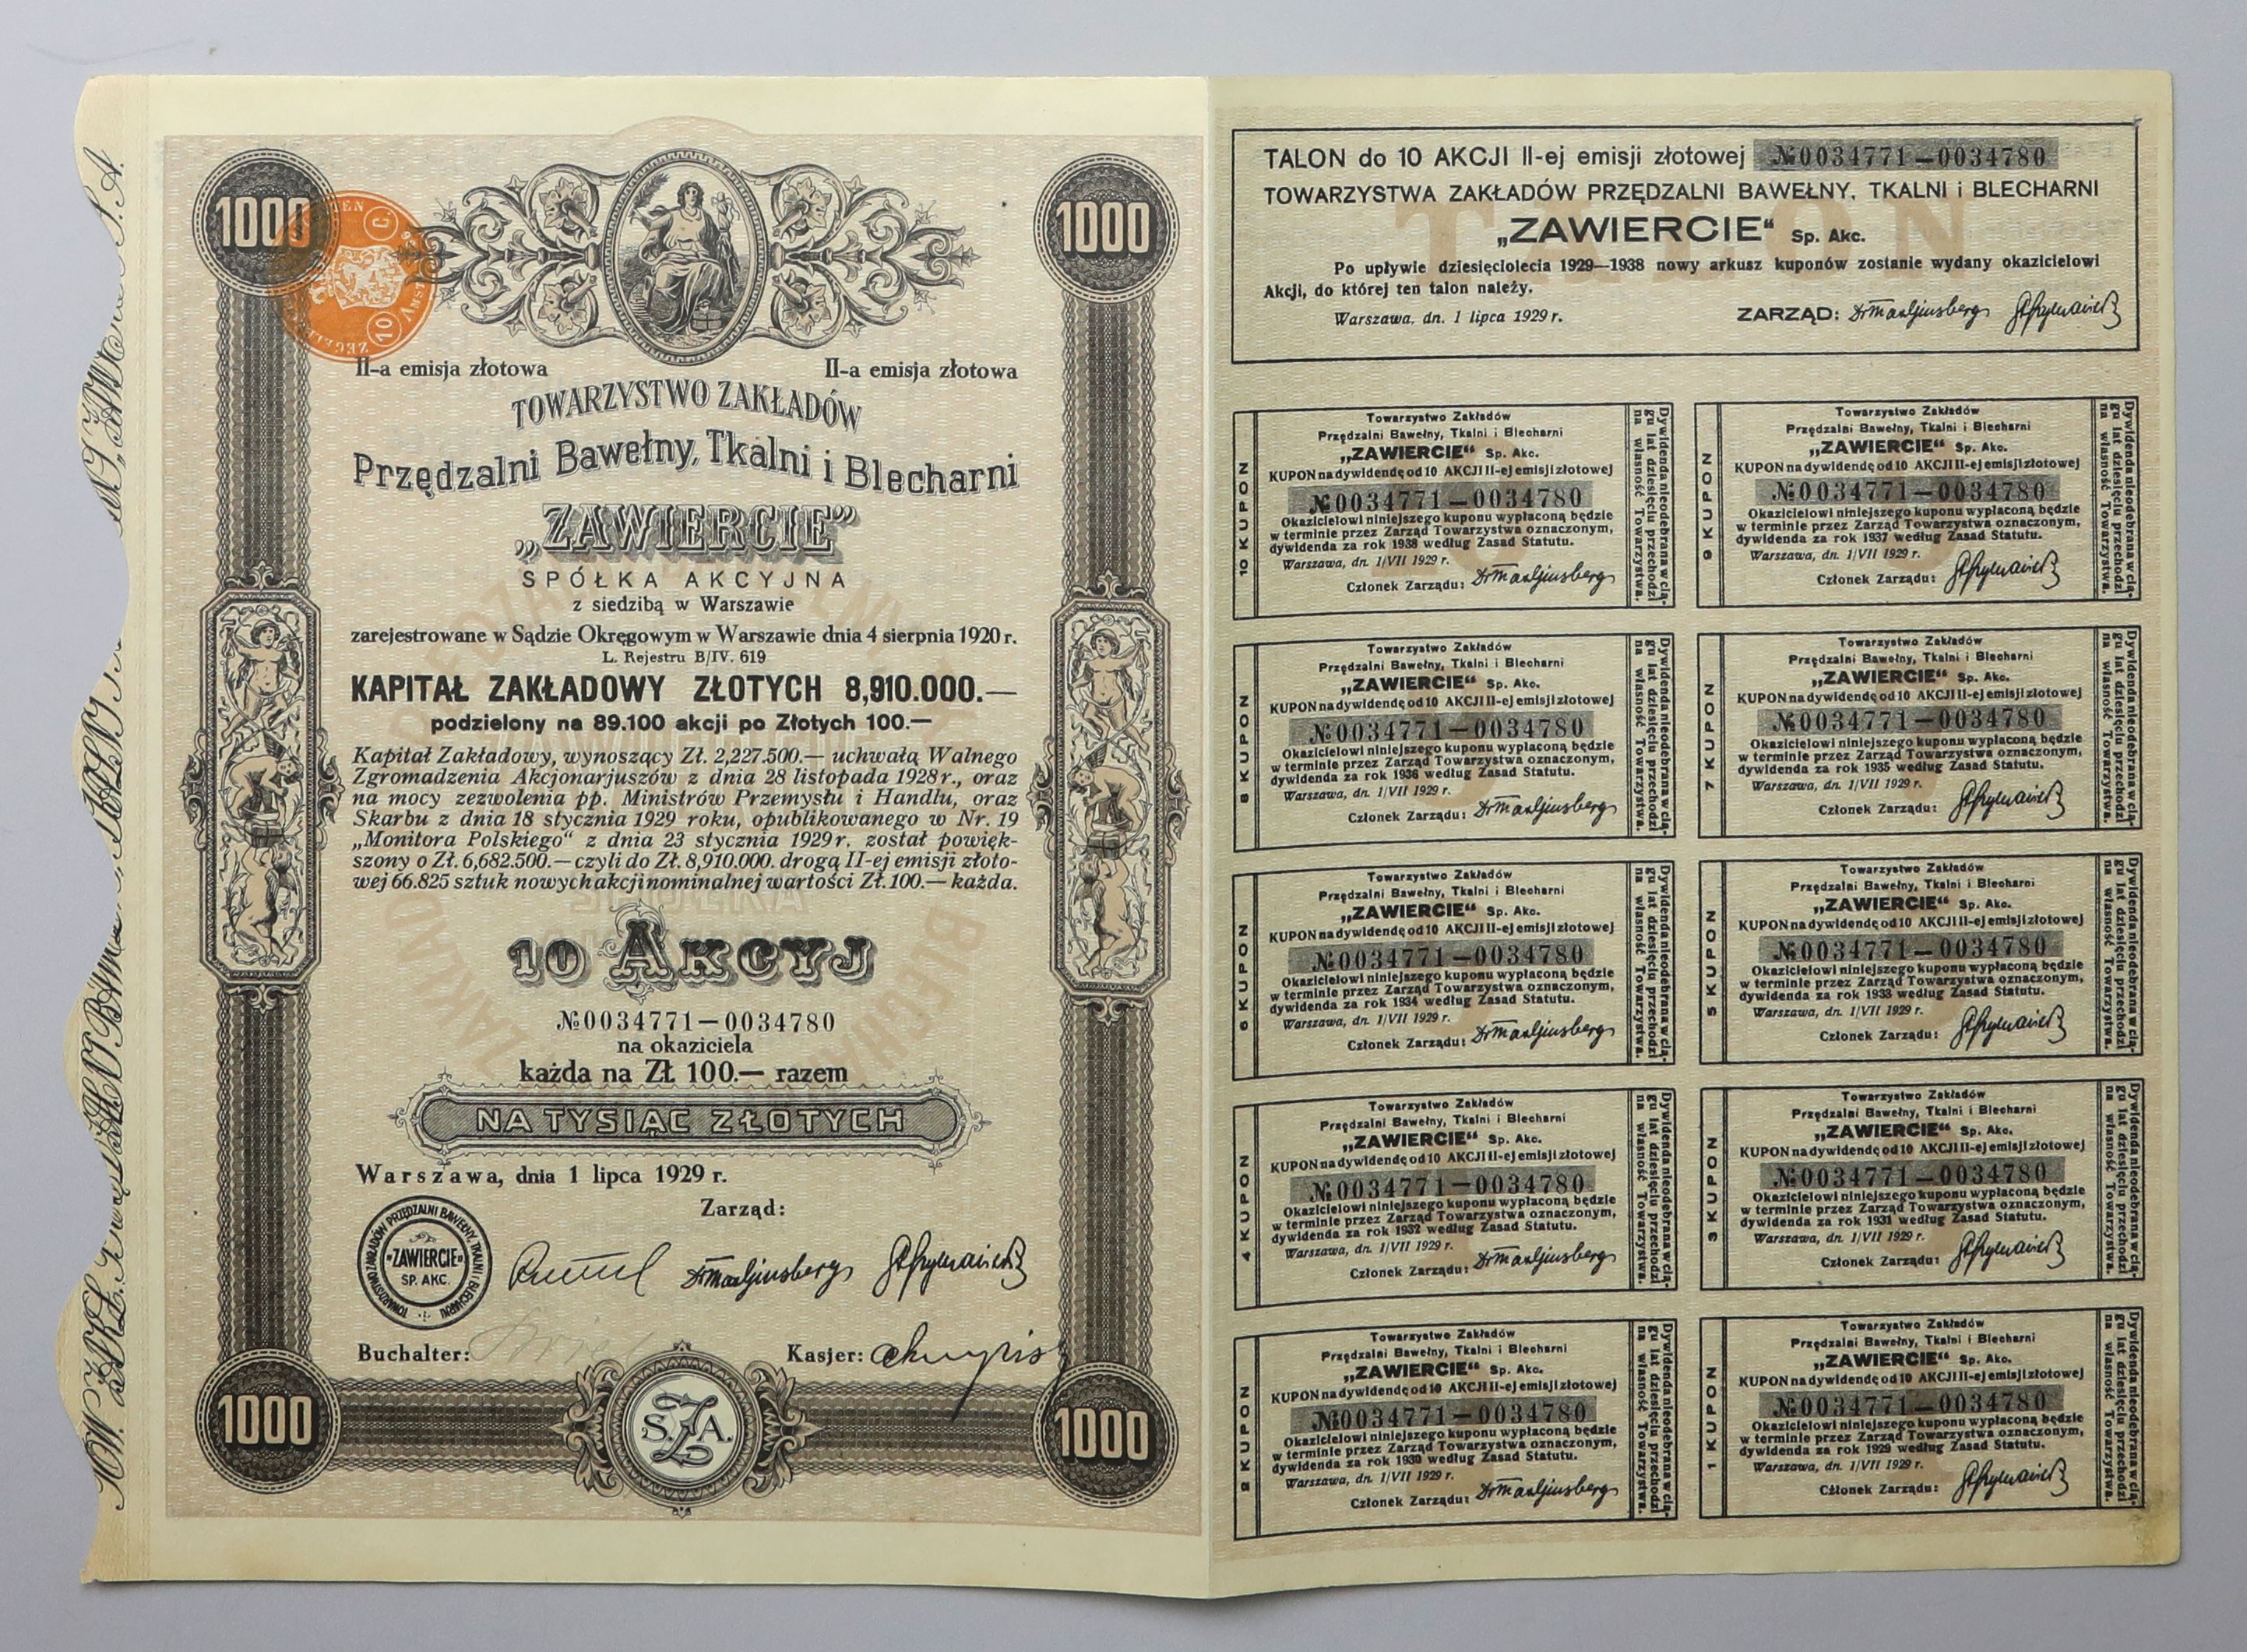 1000
1000
II-a emisja złotowa
II-a emisja złotowa
TOWARZYSTWO ZAKŁADÓW
Przędzalni Bawełny, Tkalni i Blecharni
„ZAWIERCIE”
SPÓŁKA AKCYJNA
z siedzibą w Warszawie
zarejestrowane w Sądzie Okręgowym w Warszawie dnia 4 sierpnia 1920 r.
L. Rejestru B/IV. 619
KAPITAŁ ZAKŁADOWY ZŁOTYCH 8,910.000.—
podzielony na 89.100 akcji po Złotych 100.—
Kapitał Zakładowy, wynoszący Zł. 2,227.500.— uchwałą Walnego
Zgromadzenia Akcjonarjuszów z dnia 28 listopada 1928 r., oraz
na mocy zezwolenia pp. Ministrów Przemysłu i Handlu, oraz
Skarbu z dnia 18 stycznia 1929 roku, opublikowanego w Nr. 19
„Monitora Polskiego“ z dnia 23 stycznia 1929 r. został powięk-
szony o Zł. 6,682.500.— czyli do Zł. 8,910.000. drogą II-ej emisji złoto-
wej 66.825 sztuk nowych akcji nominalnej wartości Zł. 100.— każda.
10 AKCYJ
№0034771—0034780
na okaziciela
każda na Zł. 100.— razem
NA TYSIĄC ZŁOTYCH
Warszawa, dnia 1 lipca 1929 r.
Zarząd:
TOWARZYSTWO ZAKŁADÓW PRZĘDZALNI BAWEŁNY, TKALNI i BLECHARNI
"ZAWIERCIE"
SP. AKC.
Buchalter:
Kasjer:
1000
S. Z. A.
1000
TALON do 10 AKCJI II-ej emisji złotowej №0034771—0034780
TOWARZYSTWA ZAKŁADÓW PRZĘDZALNI BAWEŁNY, TKALNI i BLECHARNI
„ZAWIERCIE“ Sp. Akc.
Po upływie dziesięciolecia 1929—1938 nowy arkusz kuponów zostanie wydany okazicielowi
Akcji, do której ten talon należy.
Warszawa, dn. 1 lipca 1929 r.
ZARZĄD:
10 KUPON
Towarzystwo Zakładów
Przędzalni Bawełny, Tkalni i Blecharni
„ZAWIERCIE“ Sp. Akc.
KUPON na dywidendę od 10 AKCJI II-ej emisji złotowej
№0034771—0034780
Okazicielowi niniejszego kuponu wypłaconą będzie
w terminie przez Zarząd Towarzystwa oznaczonym,
dywidenda za rok 1938 według Zasad Statutu.
Warszawa, dn. 1/VII 1929 r.
Członek Zarządu:
Dywidenda nieodebrana w cią-
gu lat dziesięciu przechodzi
na własność Towarzystwa.
9 KUPON
Towarzystwo Zakładów
Przędzalni Bawełny, Tkalni i Blecharni
„ZAWIERCIE“ Sp. Akc.
KUPON na dywidendę od 10 AKCJI II-ej emisji złotowej
№0034771—0034780
Okazicielowi niniejszego kuponu wypłaconą będzie
w terminie przez Zarząd Towarzystwa oznaczonym,
dywidenda za rok 1937 według Zasad Statutu.
Warszawa, dn. 1/VII 1929 r.
Członek Zarządu:
Dywidenda nieodebrana w cią-
gu lat dziesięciu przechodzi
na własność Towarzystwa.
8 KUPON
Towarzystwo Zakładów
Przędzalni Bawełny, Tkalni i Blecharni
„ZAWIERCIE“ Sp. Akc.
KUPON na dywidendę od 10 AKCJI II-ej emisji złotowej
№0034771—0034780
Okazicielowi niniejszego kuponu wypłaconą będzie
w terminie przez Zarząd Towarzystwa oznaczonym,
dywidenda za rok 1936 według Zasad Statutu.
Warszawa, dn. 1/VII 1929 r.
Członek Zarządu:
Dywidenda nieodebrana w cią-
gu lat dziesięciu przechodzi
na własność Towarzystwa.
7 KUPON
Towarzystwo Zakładów
Przędzalni Bawełny, Tkalni i Blecharni
„ZAWIERCIE“ Sp. Akc.
KUPON na dywidendę od 10 AKCJI II-ej emisji złotowej
№0034771—0034780
Okazicielowi niniejszego kuponu wypłaconą będzie
w terminie przez Zarząd Towarzystwa oznaczonym,
dywidenda za rok 1935 według Zasad Statutu.
Warszawa, dn. 1/VII 1929 r.
Członek Zarządu:
Dywidenda nieodebrana w cią-
gu lat dziesięciu przechodzi
na własność Towarzystwa.
6 KUPON
Towarzystwo Zakładów
Przędzalni Bawełny, Tkalni i Blecharni
„ZAWIERCIE“ Sp. Akc.
KUPON na dywidendę od 10 AKCJI II-ej emisji złotowej
№0034771—0034780
Okazicielowi niniejszego kuponu wypłaconą będzie
w terminie przez Zarząd Towarzystwa oznaczonym,
dywidenda za rok 1934 według Zasad Statutu.
Warszawa, dn. 1/VII 1929 r.
Członek Zarządu:
Dywidenda nieodebrana w cią-
gu lat dziesięciu przechodzi
na własność Towarzystwa.
5 KUPON
Towarzystwo Zakładów
Przędzalni Bawełny, Tkalni i Blecharni
„ZAWIERCIE“ Sp. Akc.
KUPON na dywidendę od 10 AKCJI II-ej emisji złotowej
№0034771—0034780
Okazicielowi niniejszego kuponu wypłaconą będzie
w terminie przez Zarząd Towarzystwa oznaczonym,
dywidenda za rok 1933 według Zasad Statutu.
Warszawa, dn. 1/VII 1929 r.
Członek Zarządu:
Dywidenda nieodebrana w cią-
gu lat dziesięciu przechodzi
na własność Towarzystwa.
4 KUPON
Towarzystwo Zakładów
Przędzalni Bawełny, Tkalni i Blecharni
„ZAWIERCIE“ Sp. Akc.
KUPON na dywidendę od 10 AKCJI II-ej emisji złotowej
№0034771—0034780
Okazicielowi niniejszego kuponu wypłaconą będzie
w terminie przez Zarząd Towarzystwa oznaczonym,
dywidenda za rok 1932 według Zasad Statutu.
Warszawa, dn. 1/VII 1929 r.
Członek Zarządu:
Dywidenda nieodebrana w cią-
gu lat dziesięciu przechodzi
na własność Towarzystwa.
3 KUPON
Towarzystwo Zakładów
Przędzalni Bawełny, Tkalni i Blecharni
„ZAWIERCIE“ Sp. Akc.
KUPON na dywidendę od 10 AKCJI II-ej emisji złotowej
№0034771—0034780
Okazicielowi niniejszego kuponu wypłaconą będzie
w terminie przez Zarząd Towarzystwa oznaczonym,
dywidenda za rok 1931 według Zasad Statutu.
Warszawa, dn. 1/VII 1929 r.
Członek Zarządu:
Dywidenda nieodebrana w cią-
gu lat dziesięciu przechodzi
na własność Towarzystwa.
2 KUPON
Towarzystwo Zakładów
Przędzalni Bawełny, Tkalni i Blecharni
„ZAWIERCIE“ Sp. Akc.
KUPON na dywidendę od 10 AKCJI II-ej emisji złotowej
№0034771—0034780
Okazicielowi niniejszego kuponu wypłaconą będzie
w terminie przez Zarząd Towarzystwa oznaczonym,
dywidenda za rok 1930 według Zasad Statutu.
Warszawa, dn. 1/VII 1929 r.
Członek Zarządu:
Dywidenda nieodebrana w cią-
gu lat dziesięciu przechodzi
na własność Towarzystwa.
1 KUPON
Towarzystwo Zakładów
Przędzalni Bawełny, Tkalni i Blecharni
„ZAWIERCIE“ Sp. Akc.
KUPON na dywidendę od 10 AKCJI II-ej emisji złotowej
№0034771—0034780
Okazicielowi niniejszego kuponu wypłaconą będzie
w terminie przez Zarząd Towarzystwa oznaczonym,
dywidenda za rok 1929 według Zasad Statutu.
Warszawa, dn. 1/VII 1929 r.
Członek Zarządu:
Dywidenda nieodebrana w cią-
gu lat dziesięciu przechodzi
na własność Towarzystwa.